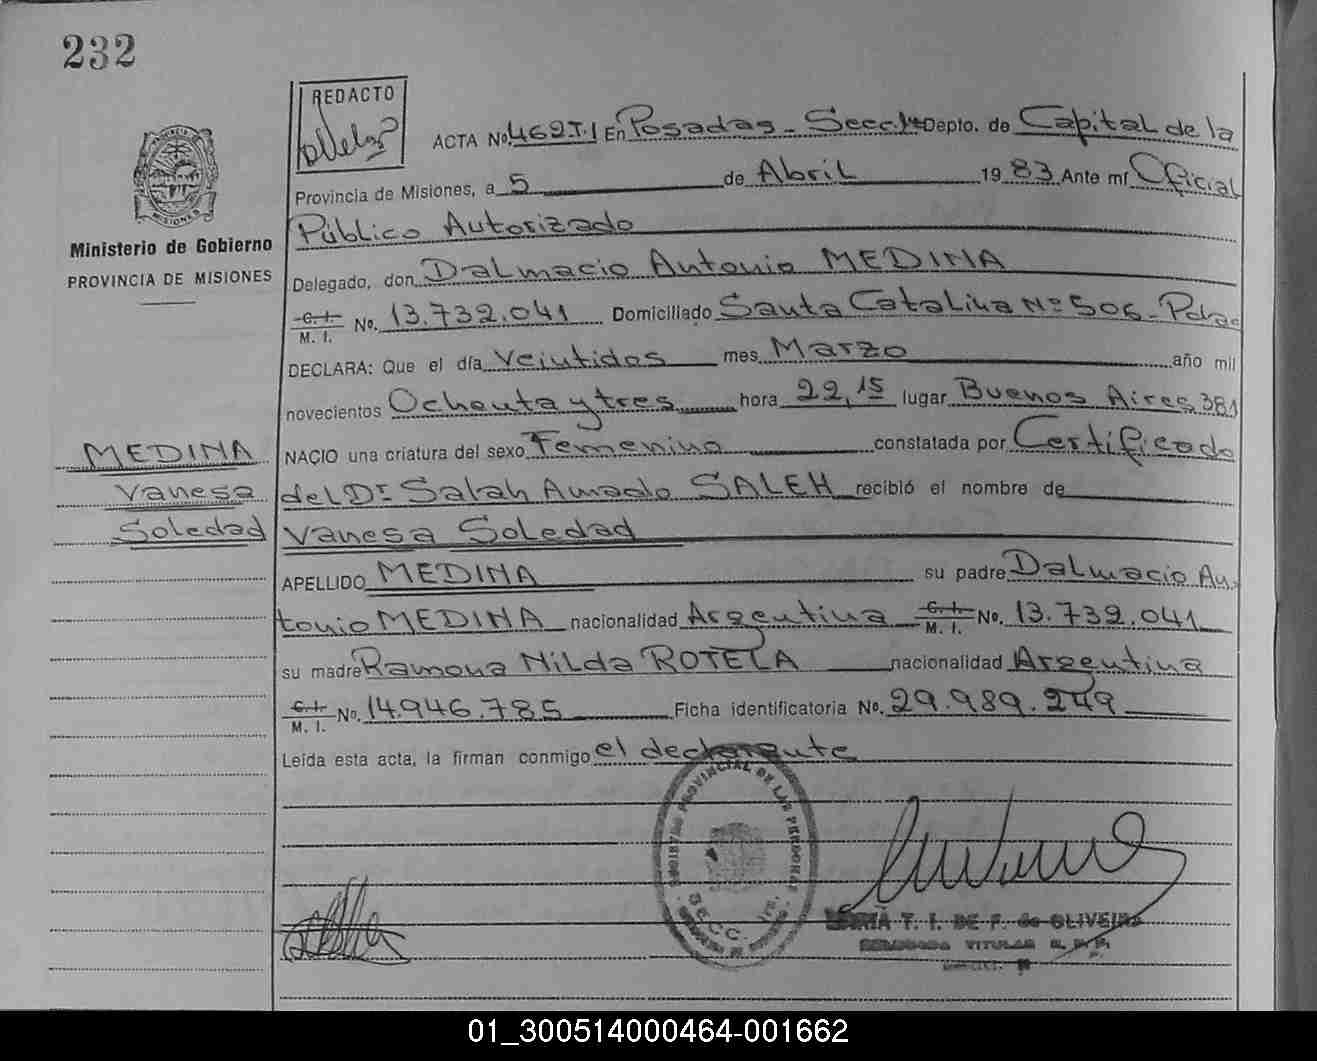 232
REDACTO
ACTA No. 469 T. I En Posadas - Secc. 1ra Depto. de Capital de la
Provincia de Misiones, a 5 de Abril 1983 Ante mí Oficial
Público Autorizado
Ministerio de Gobierno
PROVINCIA DE MISIONES
Delegado, don Dalmacio Antonio MEDINA
C. I.
M. I. No. 13.732.041 Domiciliado Santa Catalina Nº 506 - Pdas
DECLARA: Que el día Veintidos mes Marzo año mil
novecientos Ochenta y tres hora 22,15 lugar Buenos Aires 381
MEDINA
Vanesa
Soledad
NACIO una criatura del sexo Femenino constatada por Certificado
del Dr Salah Amado SALEH recibió el nombre de
Vanesa Soledad
APELLIDO MEDINA su padre Dalmacio An-
tonio MEDINA nacionalidad Argentina C. I. M. I. No. 13.732.041
su madre Ramona Nilda ROTELA nacionalidad Argentina
C. I.
M. I. No. 14.946.785 Ficha identificatoria No. 29.989.249
Leída esta acta, la firman conmigo el declarante
REGISTRO PROVINCIAL DE LAS PERSONAS
SECC. 1ra.
MARIA T. I. DE F. de OLIVEIRA
DELEGADA TITULAR R. P. P.
01_300514000464-001662